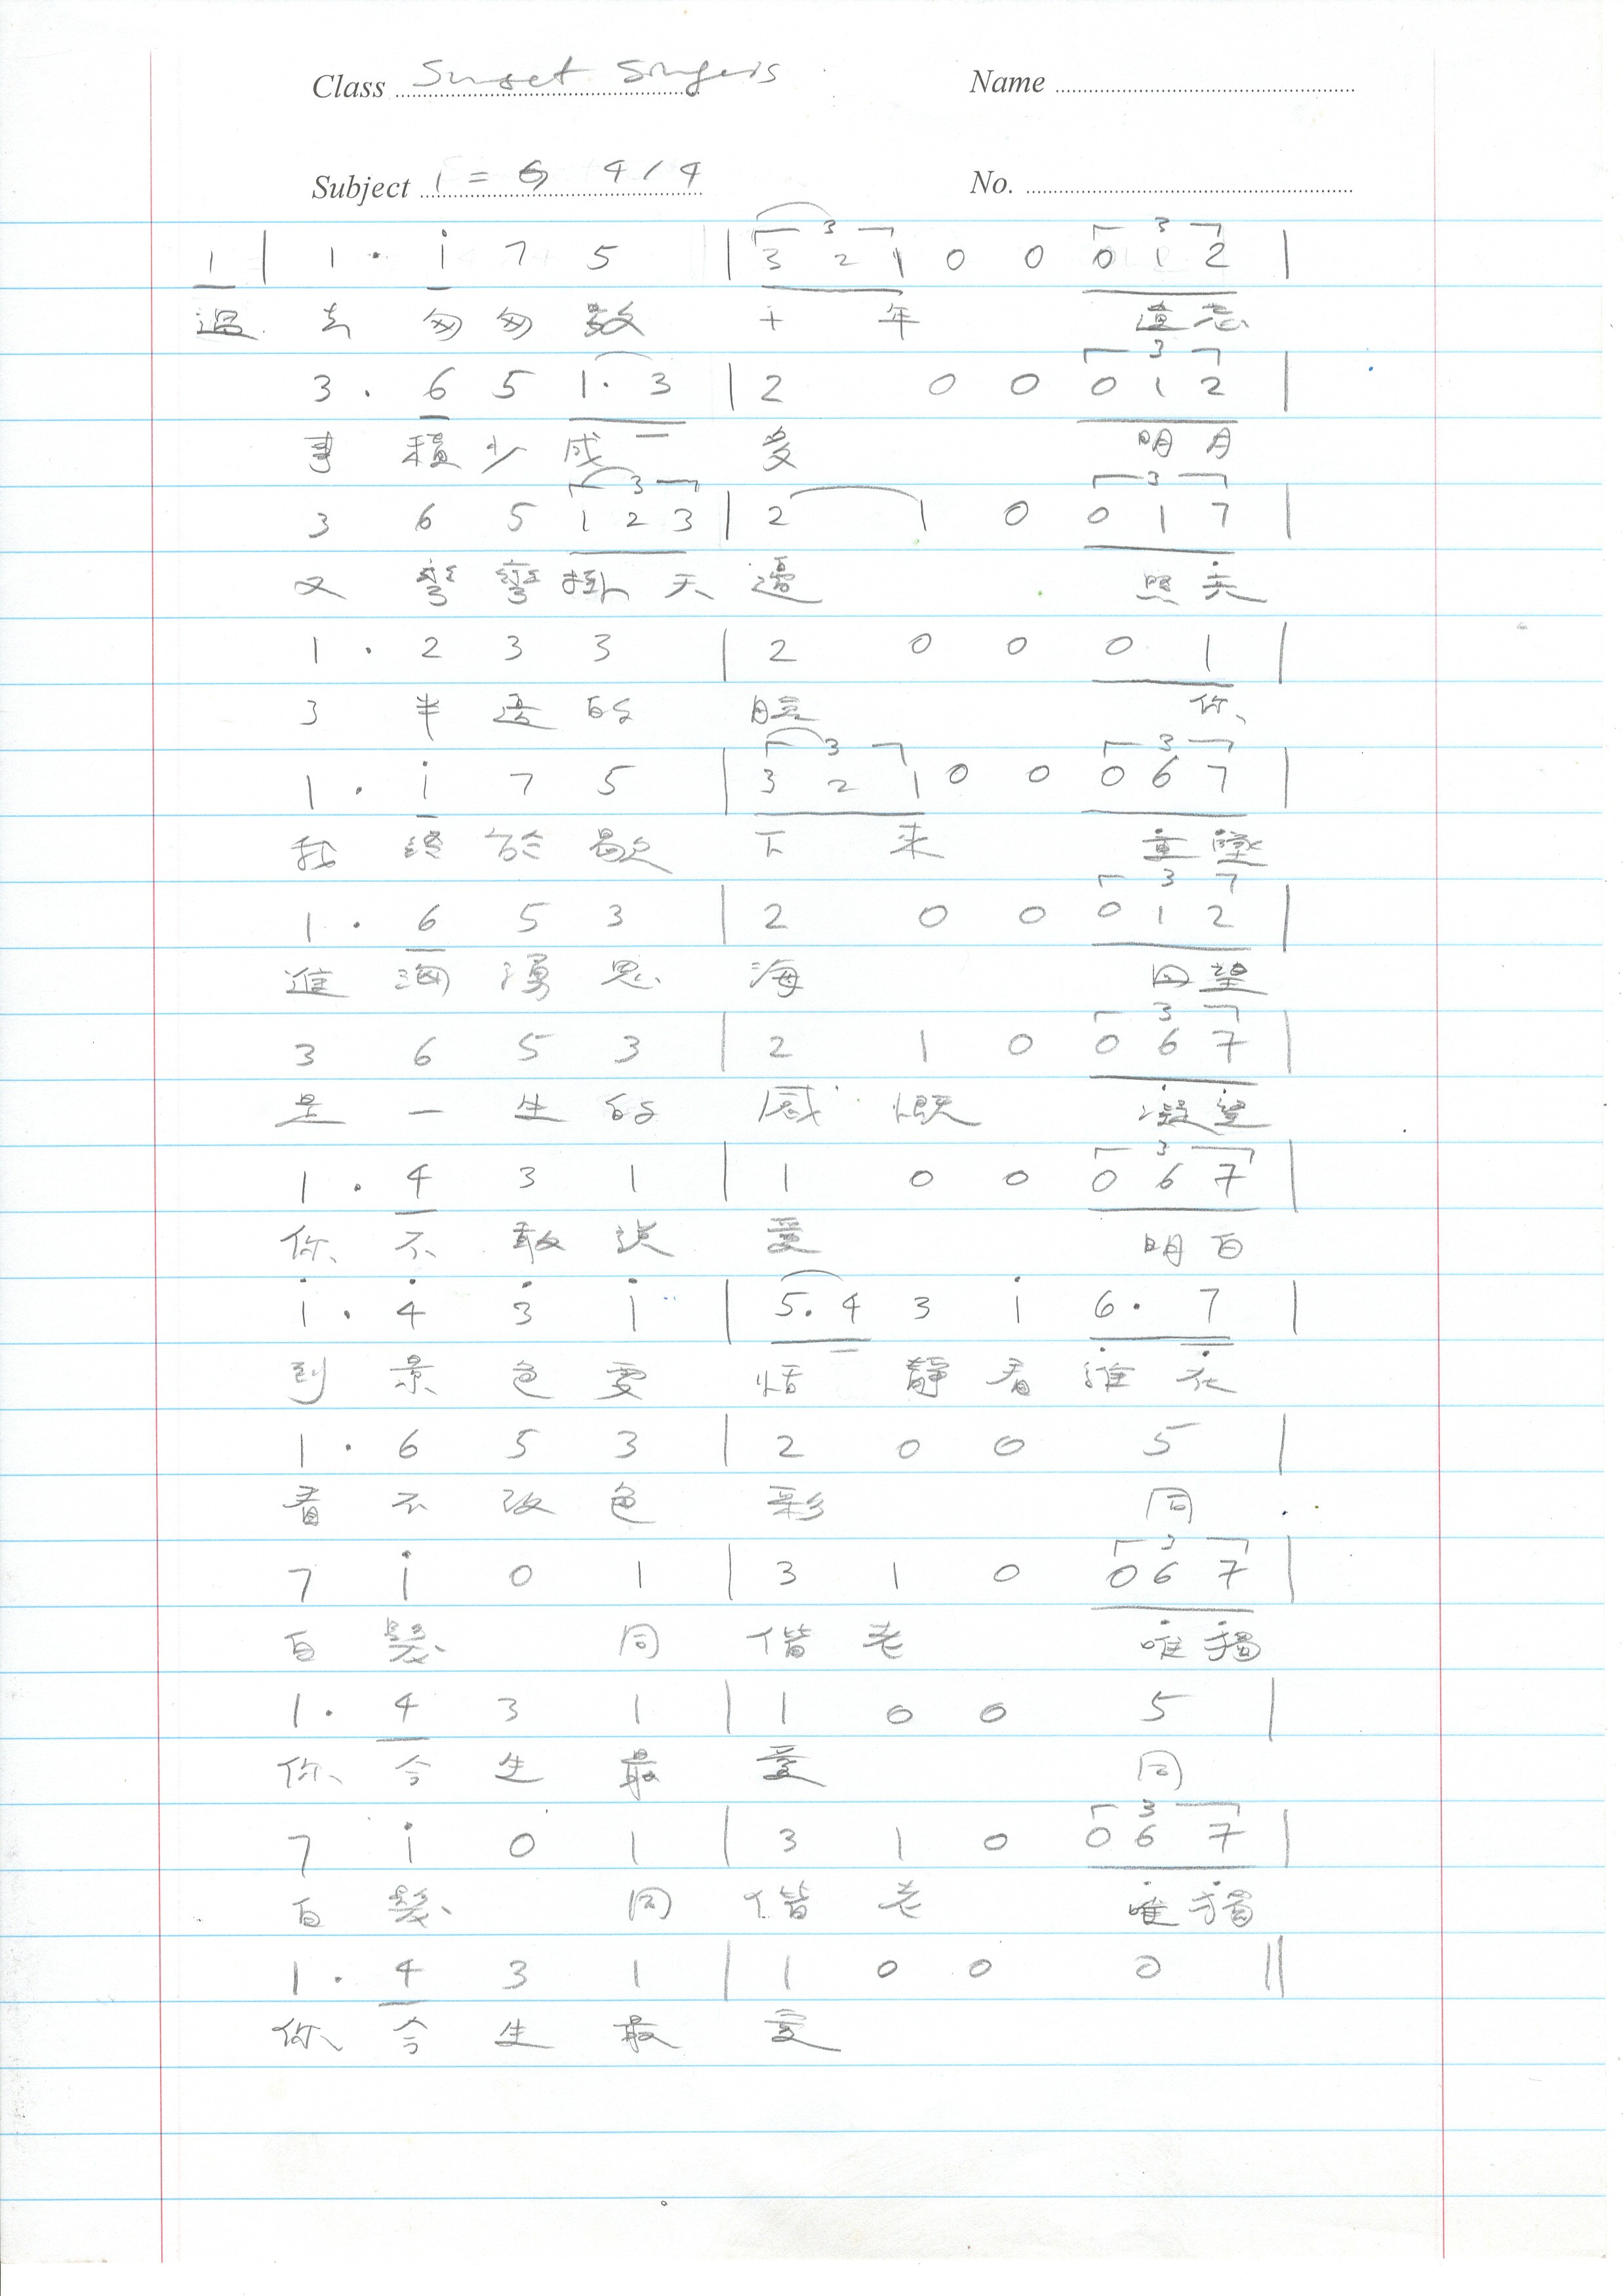 Class Sunset Singers Name
Subject 1 = G 4/4 No.
1 | 1 · i 7 5 | 3 2 1 0 0 0 1 2 |
過 去 匆 匆 數 十 年 遺忘
3 . 6 5 1 · 3 | 2 0 0 0 1 2 |
事 積 少 成 多 明 月
3 6 5 1 2 3 | 2 1 0 0 1 7 |
又 彎 彎 掛 天 邊 照 亮
1 . 2 3 3 | 2 0 0 0 1 |
3 半 邊 的 你
1 . i 7 5 | 3 2 1 0 0 0 6 7 |
我 終 於 歇 下 来 重 墜
1 . 6 5 3 | 2 0 0 0 1 2 |
進 洶 湧 思 海 回 望
3 6 5 3 | 2 1 0 0 6 7 |
是 一 生 的 感 慨 凝 望
1 . 4 3 1 | 1 0 0 0 6 7 |
你 不 敢 談 愛 明 白
i . 4 3 i | 5 . 4 3 i 6 · 7 |
到 景 色 要 恬 靜 看 誰 衣
1 · 6 5 3 | 2 0 0 5 |
看 不 改 色 彩 同
7 i 0 1 | 3 1 0 0 6 7 |
白 髮 同 偕 老 唯 獨
1 . 4 3 1 | 1 0 0 5 |
你 今 生 最 愛 同
7 i 0 1 | 3 1 0 0 6 7 |
白 髮 同 偕 老 唯 獨
1 . 4 3 1 | 1 0 0 0 ||
你 今 生 最 愛